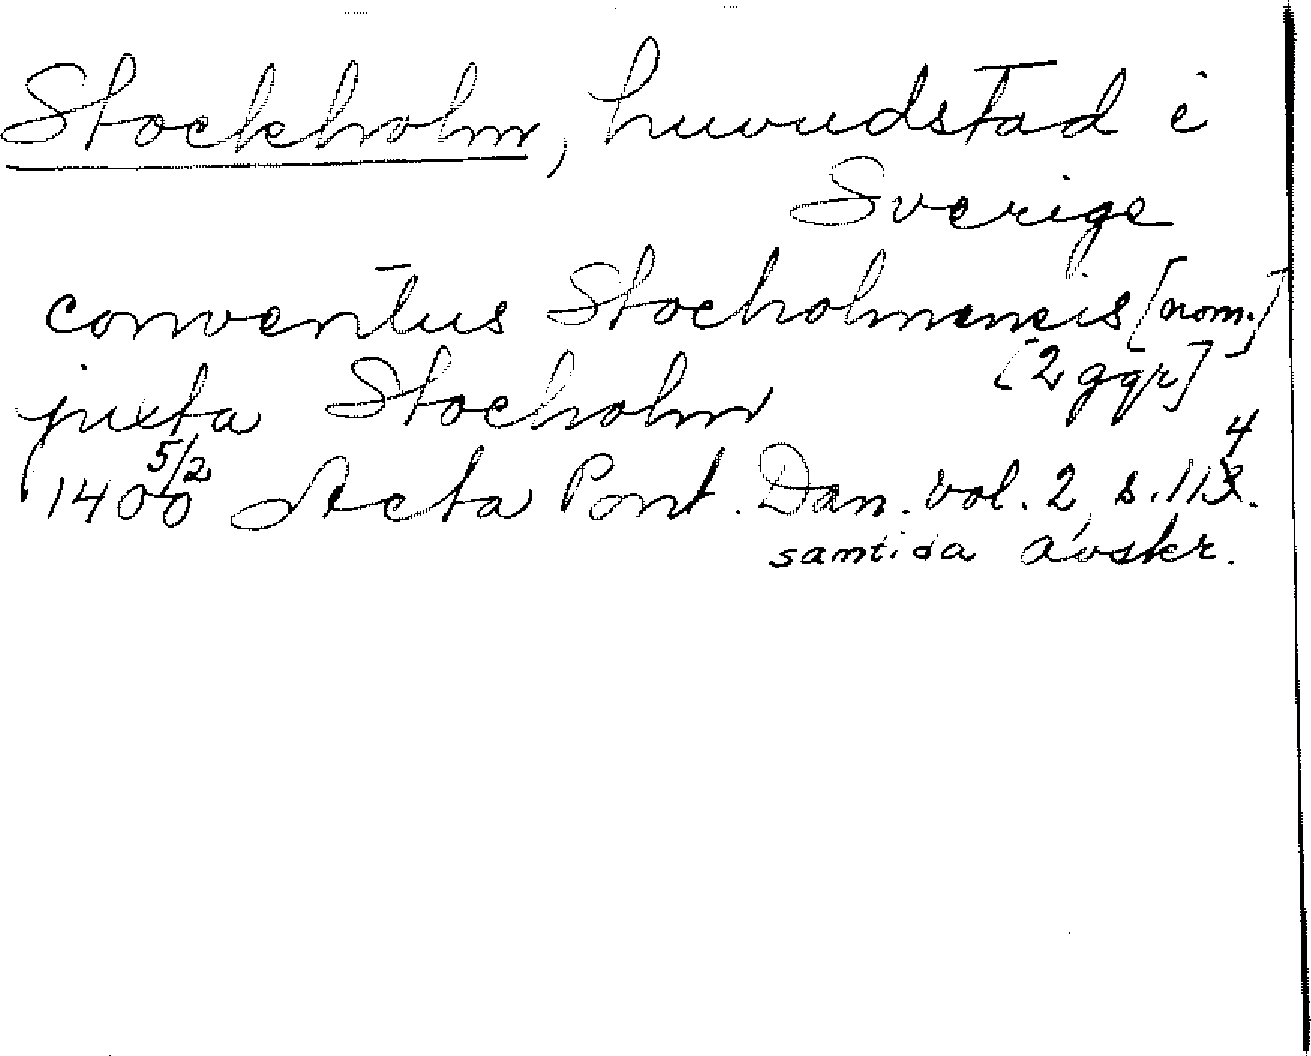 Stockholm, huvudstad i
Sverige
conventus Stocholmensis [nom.]
[2 ggr]
juxta Stocholm
1400 5/2 Acta Pont. Dan. vol. 2, s. 114.
samtida avskr.